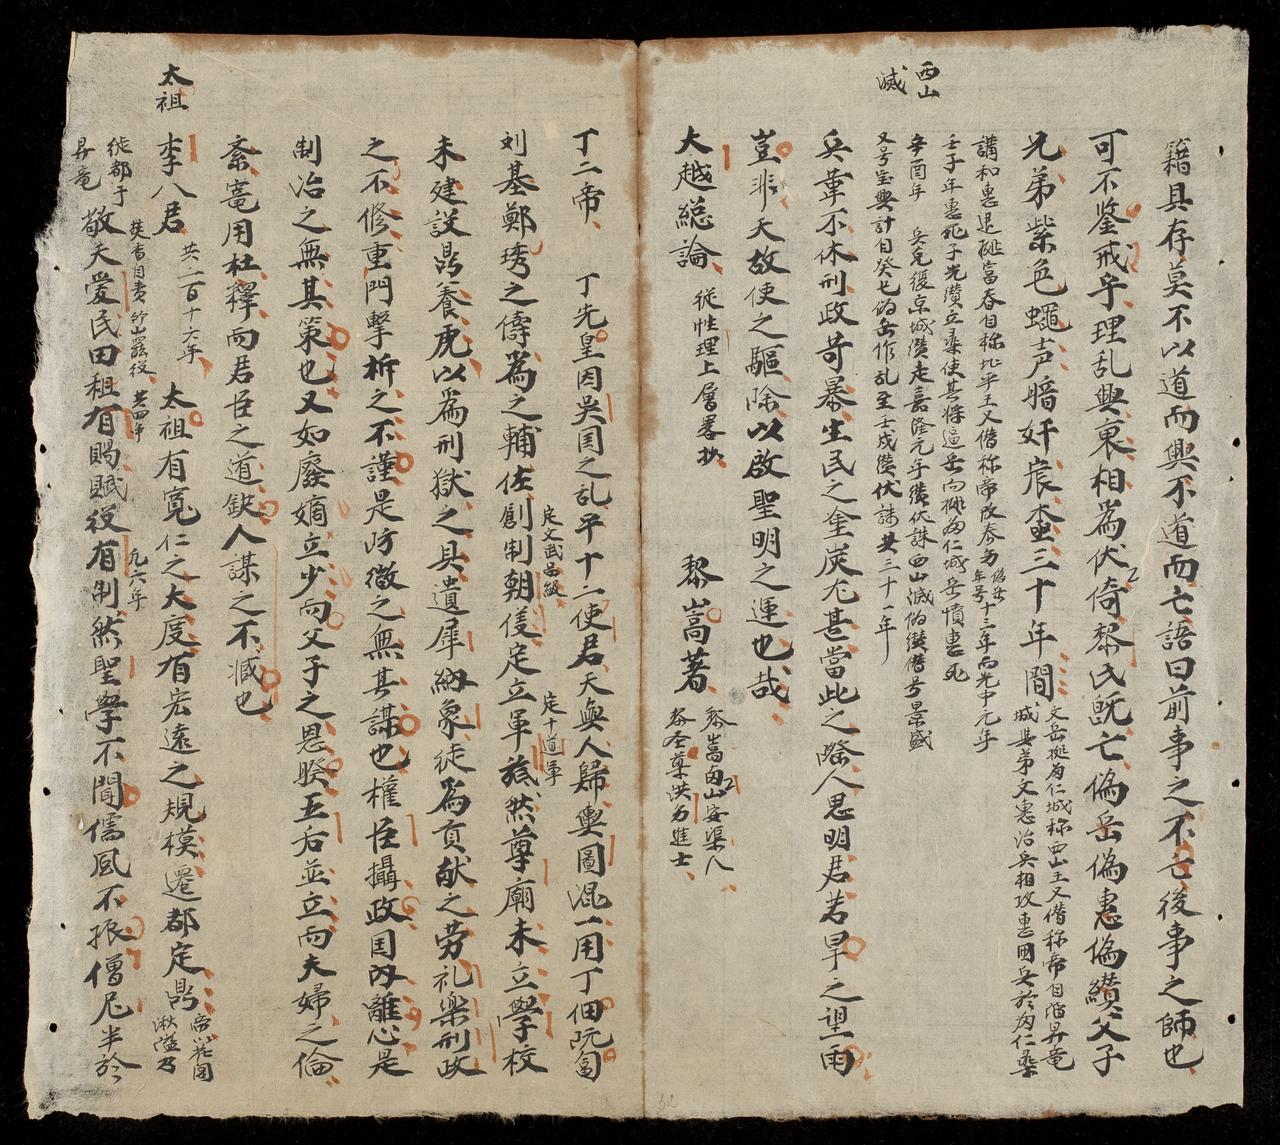 籍具存莫不以道而興不道而亡語曰前事之不亡後事之師也
可不鑒戒乎理乱興衰相為伏倚黎氏既亡偽岳偽惠偽纘父子
兄弟紫色蠅声暗奸
三十年間
文岳
為仁城称西山王又僭称帝
昇竜
城其弟文惠治兵相攻惠
講和惠退
富春自称北平王又僭称帝改泰为
偽岳年号
十三年而光中元年
壬子年惠死子光纘立
使其
岳
为仁城岳憤恚死
辛酉年
兵克復京城纘走嘉隆元年纘伏誅西山滅偽纘僭号景盛
又号宝興計自癸巳偽岳作乱至壬戌纘伏誅共三十一年
西山
滅
兵革不休刑政苛暴生民之塗炭尤甚當此之際人思明君若旱之望雨
豈非天故使之驅除以啟聖明之運也哉
大越総論
從性理上層畧抄
黎嵩著
黎嵩
山安渠人
黎
洪
进士
丁二帝
丁先皇因吳国之乱平十二使君天與人歸輿圖混一用丁佃阮匐
刘基鄭琇之儔為之輔佐創制朝
定文武品級
定立軍
定十道軍
然尊廟未立學校
未建設鼎養虎以為刑獄之具遺犀納象徒為貢献之劳礼樂刑政
之不修重門擊柝之不謹是
微之無其謀也權臣攝政国内離心是
制治之無其策也又如廢嫡立少而父子之恩睽五后並立而夫婦之倫
紊竈用杜釋而君臣之道缺人謀之不減也
太祖
李八君
共二百十六年
太祖有寬仁之大度有宏遠之規模遷都定鼎
徙都于
昇竜
敬天愛民田租有賜賦役有制然聖學不聞儒風不振僧尼半於